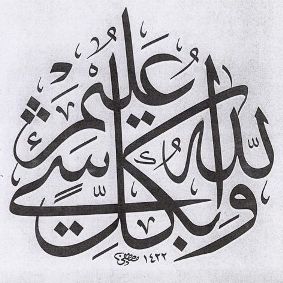 والله بكل شيء عليم
١٤٢٢